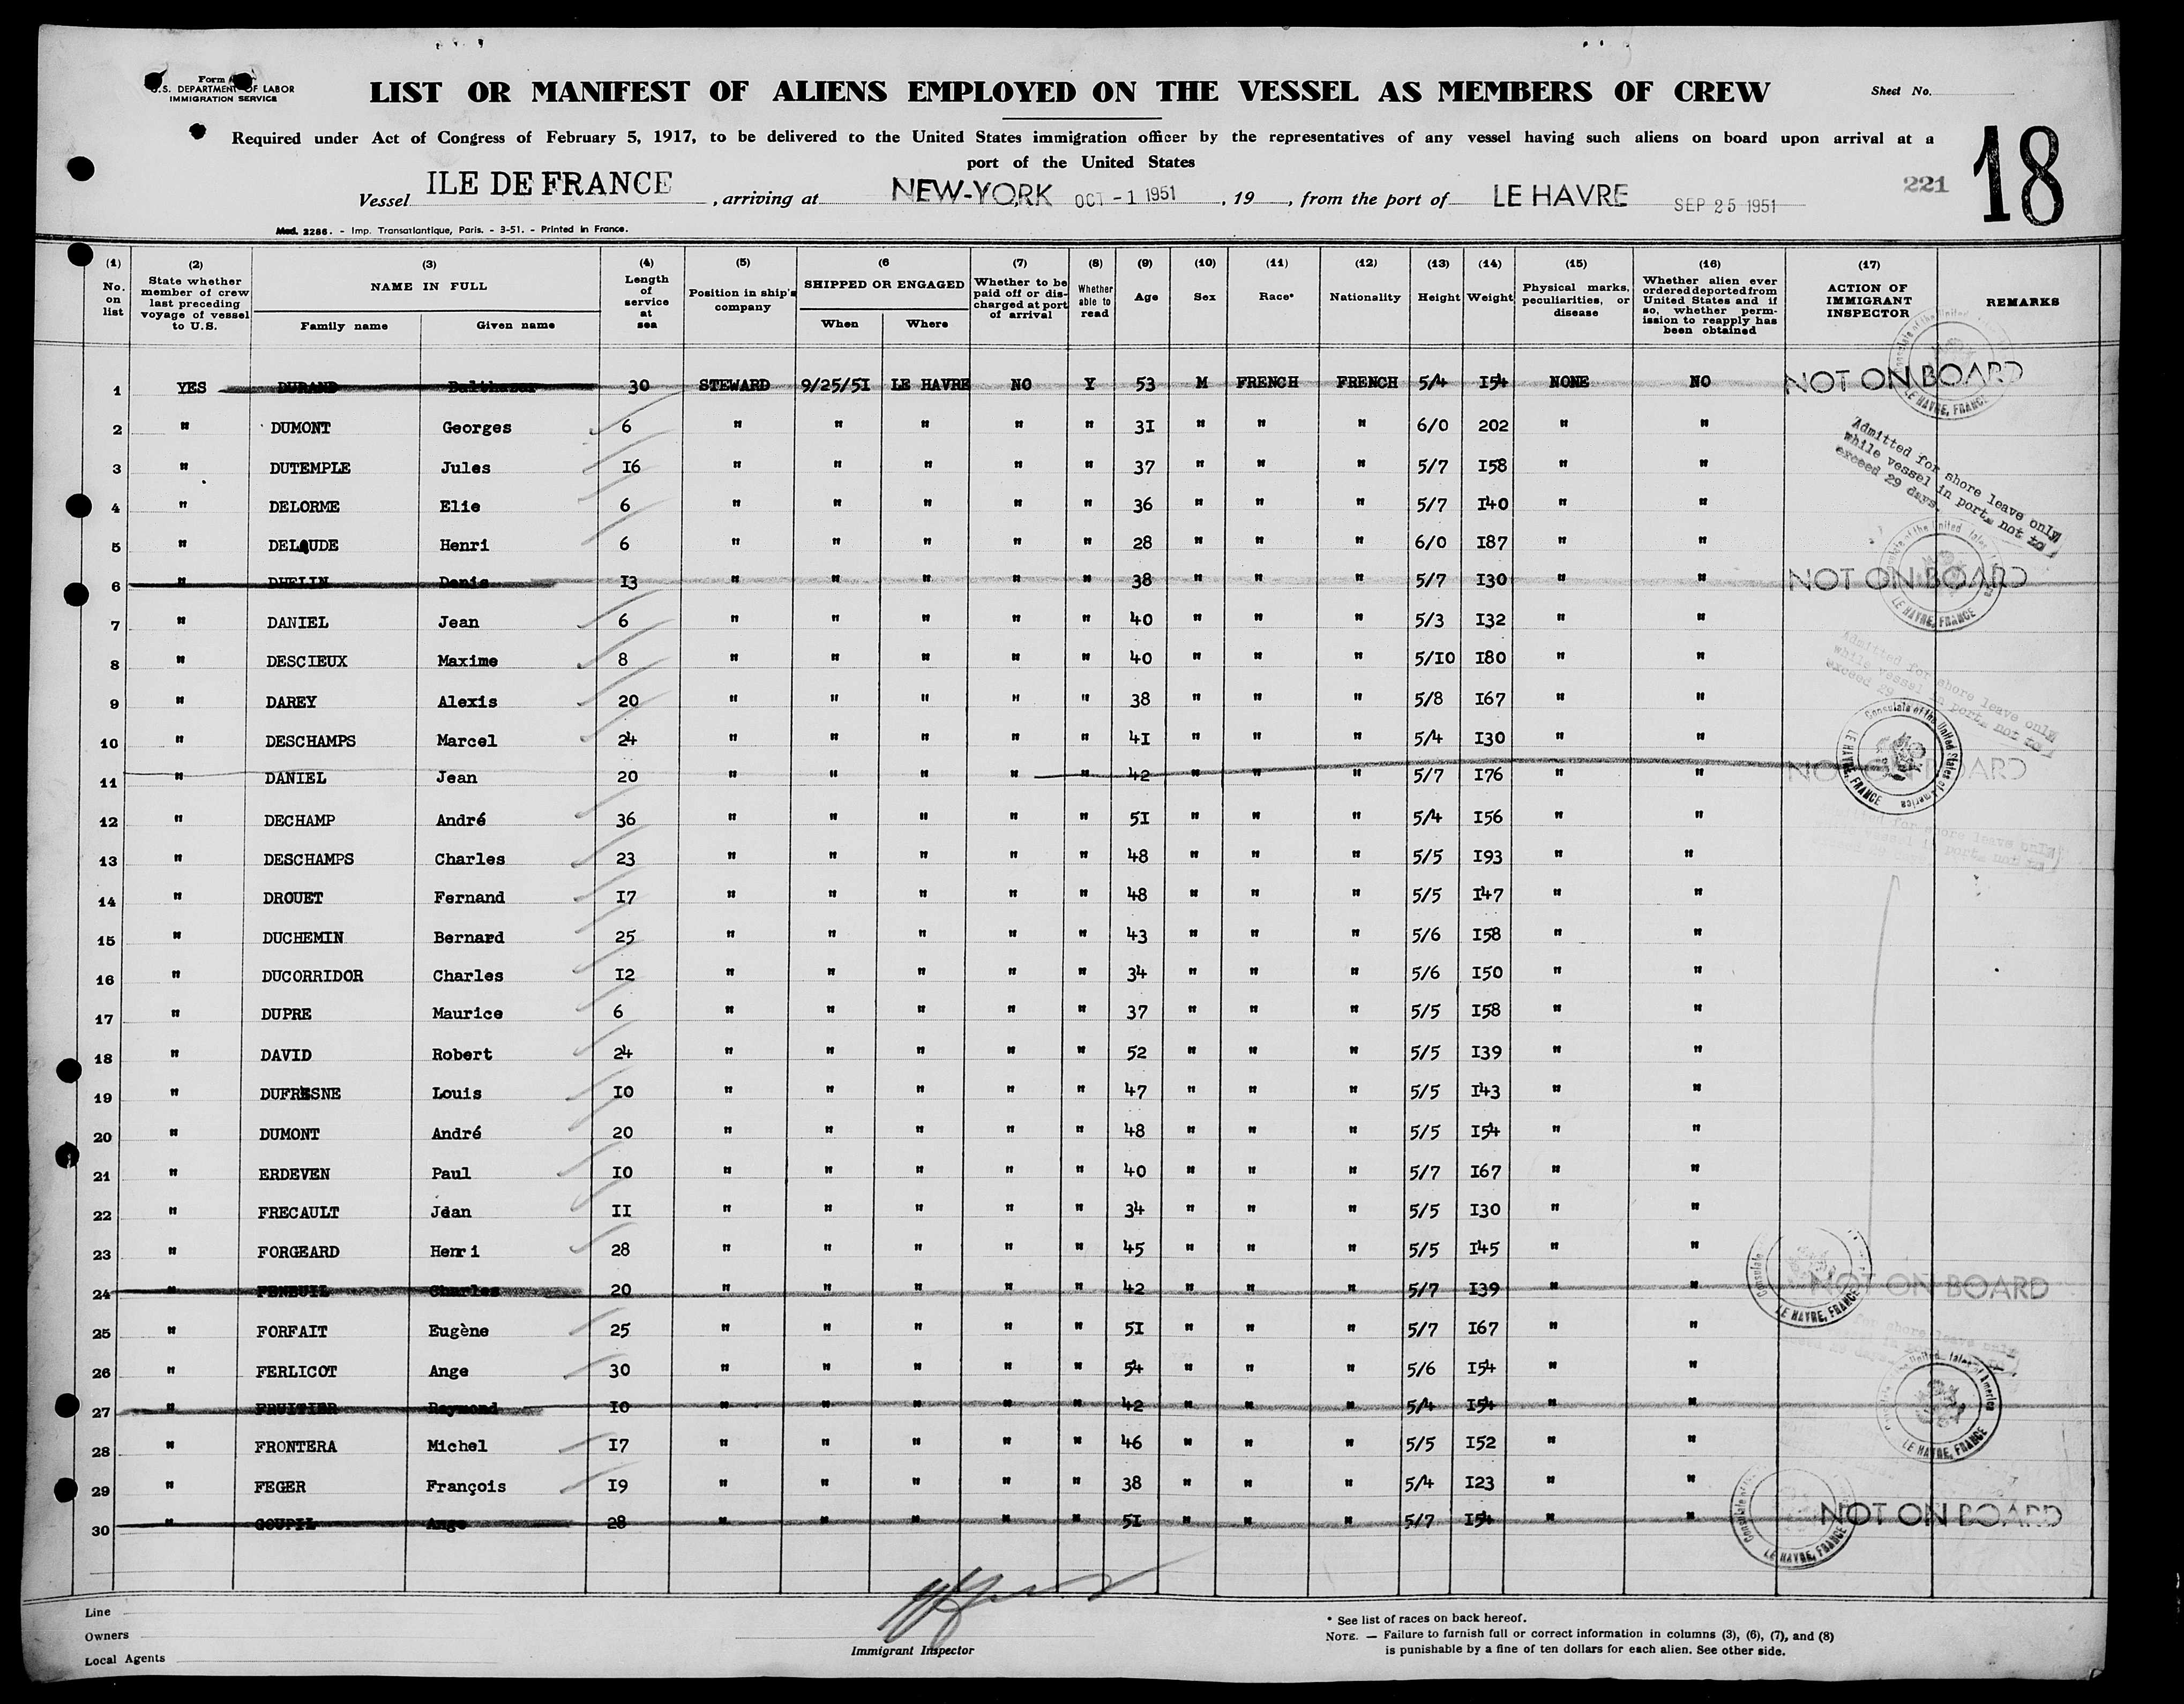 Form
U.S. DEPARTMENT OF LABOR
IMMIGRATION SERVICE
LIST OR MANIFEST OF ALIENS EMPLOYED ON THE VESSEL AS MEMBERS OF CREW
Sheet No.
Required under Act of Congress of February 5, 1917, to be delivered to the United States immigration officer by the representatives of any vessel having such aliens on board upon arrival at a
port of the United States
18
Vessel ILE DE FRANCE , arriving at NEW-YORK OCT -1 1951 , 19 , from the port of LE HAVRE SEP 25 1951
221
Mod. 2286. - Imp. Transatlantique, Paris. - 3-51. - Printed in France.
(1) No. on list
(2) State whether member of crew last preceding voyage of vessel to U.S.
(3) NAME IN FULL Family name Given name
(4) Length of service at sea
(5) Position in ship's company
(6 SHIPPED OR ENGAGED When Where
(7) Whether to be paid off or dis- charged at port of arrival
(8) Whether able to read
(9) Age
(10) Sex
(11) Race*
(12) Nationality
(13) Height
(14) Weight
(15) Physical marks, peculiarities, or disease
(16) Whether alien ever ordered deported from United States and if so, whether perm- ission to reapply has been obtained
(17) ACTION OF IMMIGRANT INSPECTOR
REMARKS
1 YES DURAND Balthazar 30 STEWARD 9/25/51 LE HAVRE NO Y 53 M FRENCH FRENCH 5/4 154 NONE NO NOT ON BOARD
2 " DUMONT Georges 6 " " " " " 31 " " " 6/0 202 " "
3 " DUTEMPLE Jules 16 " " " " " 37 " " " 5/7 158 " "
4 " DELORME Elie 6 " " " " " 36 " " " 5/7 140 " "
5 " DELAUDE Henri 6 " " " " " 28 " " " 6/0 187 " "
Admitted for shore leave only
while vessel in port, not to
exceed 29 days.
6 " DHELIN Denis 13 " " " " " 38 " " " 5/7 130 " " NOT ON BOARD
7 " DANIEL Jean 6 " " " " " 40 " " " 5/3 132 " "
8 " DESCIEUX Maxime 8 " " " " " 40 " " " 5/10 180 " "
9 " DAREY Alexis 20 " " " " " 38 " " " 5/8 167 " "
Admitted for shore leave only
while vessel in port, not to
exceed 29
10 " DESCHAMPS Marcel 24 " " " " " 41 " " " 5/4 130 " "
11 " DANIEL Jean 20 " " " " " 42 " " " 5/7 176 " " NOT ON BOARD
12 " DECHAMP André 36 " " " " " 51 " " " 5/4 156 " "
for shore leave only
vessel in port, not to
13 " DESCHAMPS Charles 23 " " " " " 48 " " " 5/5 193 " "
14 " DROUET Fernand 17 " " " " " 48 " " " 5/5 147 " "
15 " DUCHEMIN Bernard 25 " " " " " 43 " " " 5/6 158 " "
16 " DUCORRIDOR Charles 12 " " " " " 34 " " " 5/6 150 " "
17 " DUPRE Maurice 6 " " " " " 37 " " " 5/5 158 " "
18 " DAVID Robert 24 " " " " " 52 " " " 5/5 139 " "
19 " DUFRESNE Louis 10 " " " " " 47 " " " 5/5 143 " "
20 " DUMONT André 20 " " " " " 48 " " " 5/5 154 " "
21 " ERDEVEN Paul 10 " " " " " 40 " " " 5/7 167 " "
22 " FRECAULT Jean 11 " " " " " 34 " " " 5/5 130 " "
23 " FORGEARD Henri 28 " " " " " 45 " " " 5/5 145 " "
24 " FENEUIL Charles 20 " " " " " 42 " " " 5/7 139 " " NOT ON BOARD
25 " FORFAIT Eugène 25 " " " " " 51 " " " 5/7 167 " "
for shore leave only
26 " FERLICOT Ange 30 " " " " " 54 " " " 5/6 154 " "
27 " FRUITIER Raymond 10 " " " " " 42 " " " 5/4 154 " "
28 " FRONTERA Michel 17 " " " " " 46 " " " 5/5 152 " "
29 " FEGER François 19 " " " " " 38 " " " 5/4 123 " "
30 " GOUPIL Ange 28 " " " " " 51 " " " 5/7 154 " " NOT ON BOARD
Consulate of the United States of America
LE HAVRE, FRANCE
Line
Owners
Local Agents
Immigrant Inspector
* See list of races on back hereof.
NOTE. — Failure to furnish full or correct information in columns (3), (6), (7), and (8)
is punishable by a fine of ten dollars for each alien. See other side.